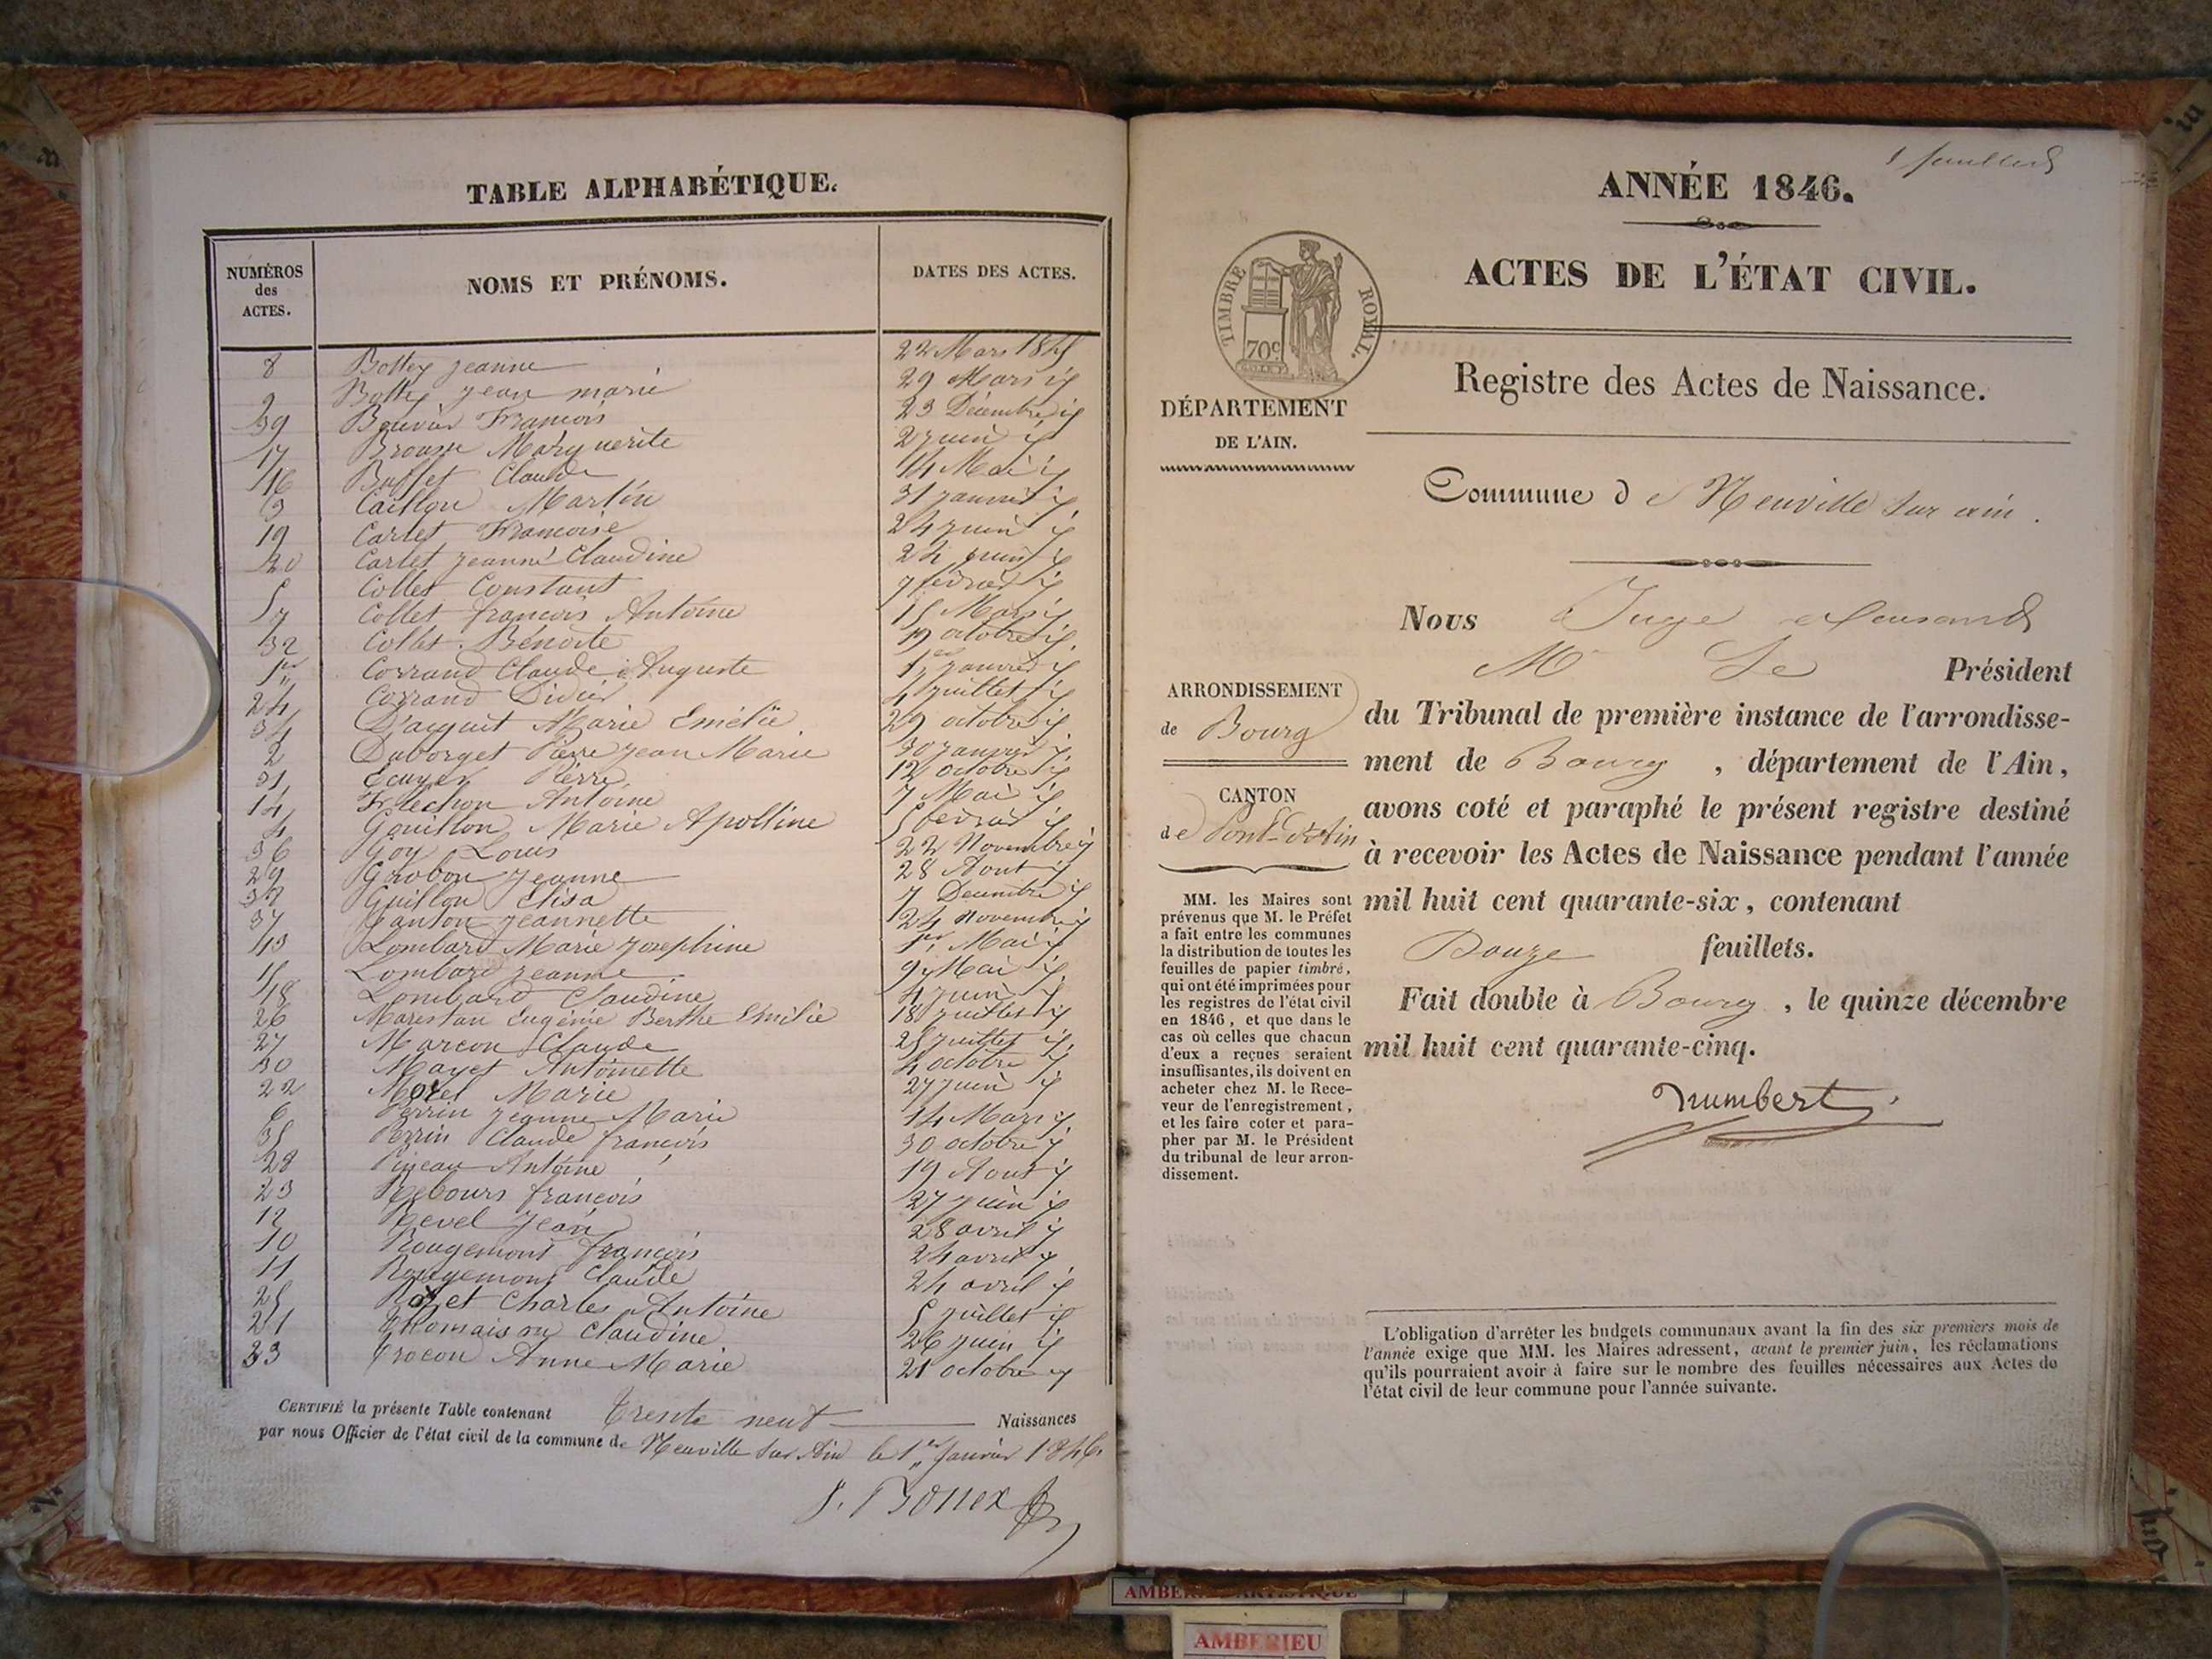 TABLE ALPHABÉTIQUE.
NUMÉROS des ACTES.
NOMS ET PRÉNOMS.
DATES DES ACTES.
8 Bottey Jeanne 22 Mars 1845
9 Bottey Jean marie 29 Mars
39 Bouvier François 23 Décembre
17 Brousse Marguerite 2 juin
16 Buffet Claude 14 Mai
3 Caillou Martin 31 janvier
19 Carlet Françoise 24 juin
20 Carlet Jeanne Claudine 24 juin
5 Collet Constant 7 fevrier
7 Collet françois Antoine 15 Mars
32 Collet Benoite 19 octobre
1er Corrand Claude Auguste 1er janvier
24 Corrand Didier 4 juillet
34 Marie Emélie 29 octobre
2 Duborget Pierre Jean Marie 30 janvier
31 Ecuyer Pierre 12 octobre
14 Flechon Antoine 7 Mai
4 Gouillon Marie Apolline 5 fevrier
36 Goy Louis 22 Novembre
29 Grobon Jeanne 28 Aout
38 Guillon Elisa 7 Decembre
37 Janton Jeannette 24 Novembre
13 Lombard Marie Josephine 1er Mai
15 Lombard Jeanne 9 Mai
18 Lombard Claudine 4 juin
26 Marestan Eugénie Berthe Emilie 18 juillet
27 Marcon Claude 25 juillet
30 Mayet Antoinette 4 octobre
22 Morel Marie 27 juin
6 Perrin Jeanne Marie 14 Mars
35 Perrin Claude françois 30 octobre
28 Antoine 19 Aout
23 Rebours françois 27 juin
12 Revel Jean 28 avril
10 Rougemont françois 24 avril
11 Rougemont Claude 24 avril
25 Charles Antoine 5 juillet
21 Thomaison Claudine 26 juin
33 Trocon Anne Marie 21 octobre
CERTIFIÉ la présente Table contenant trente neuf Naissances
par nous Officier de l'état civil de la commune de Neuville sur Ain le 1er Janvier 1846.
J. Bonnex
ANNÉE 1846.
ACTES DE L'ÉTAT CIVIL.
Registre des Actes de Naissance.
TIMBRE ROYAL.
70c
DÉPARTEMENT
DE L'AIN.
Commune de Neuville sur ain.
Nous Juge
Mr Le Président
du Tribunal de première instance de l'arrondisse-
ment de Bourg, département de l'Ain,
avons coté et paraphé le présent registre destiné
à recevoir les Actes de Naissance pendant l'année
mil huit cent quarante-six, contenant
Douze feuillets.
Fait double à Bourg, le quinze décembre
mil huit cent quarante-cinq.
humbert
ARRONDISSEMENT
de Bourg
CANTON
de Pont-d'Ain
MM. les Maires sont
prévenus que M. le Préfet
a fait entre les communes
la distribution de toutes les
feuilles de papier timbré,
qui ont été imprimées pour
les registres de l'état civil
en 1846, et que dans le
cas où celles que chacun
d'eux a reçues seraient
insuffisantes, ils doivent en
acheter chez M. le Rece-
veur de l'enregistrement,
et les faire coter et para-
pher par M. le Président
du tribunal de leur arron-
dissement.
L'obligation d'arrêter les budgets communaux avant la fin des six premiers mois de
l'année exige que MM. les Maires adressent, avant le premier juin, les réclamations
qu'ils pourraient avoir à faire sur le nombre des feuilles nécessaires aux Actes de
l'état civil de leur commune pour l'année suivante.
AMBERIEU